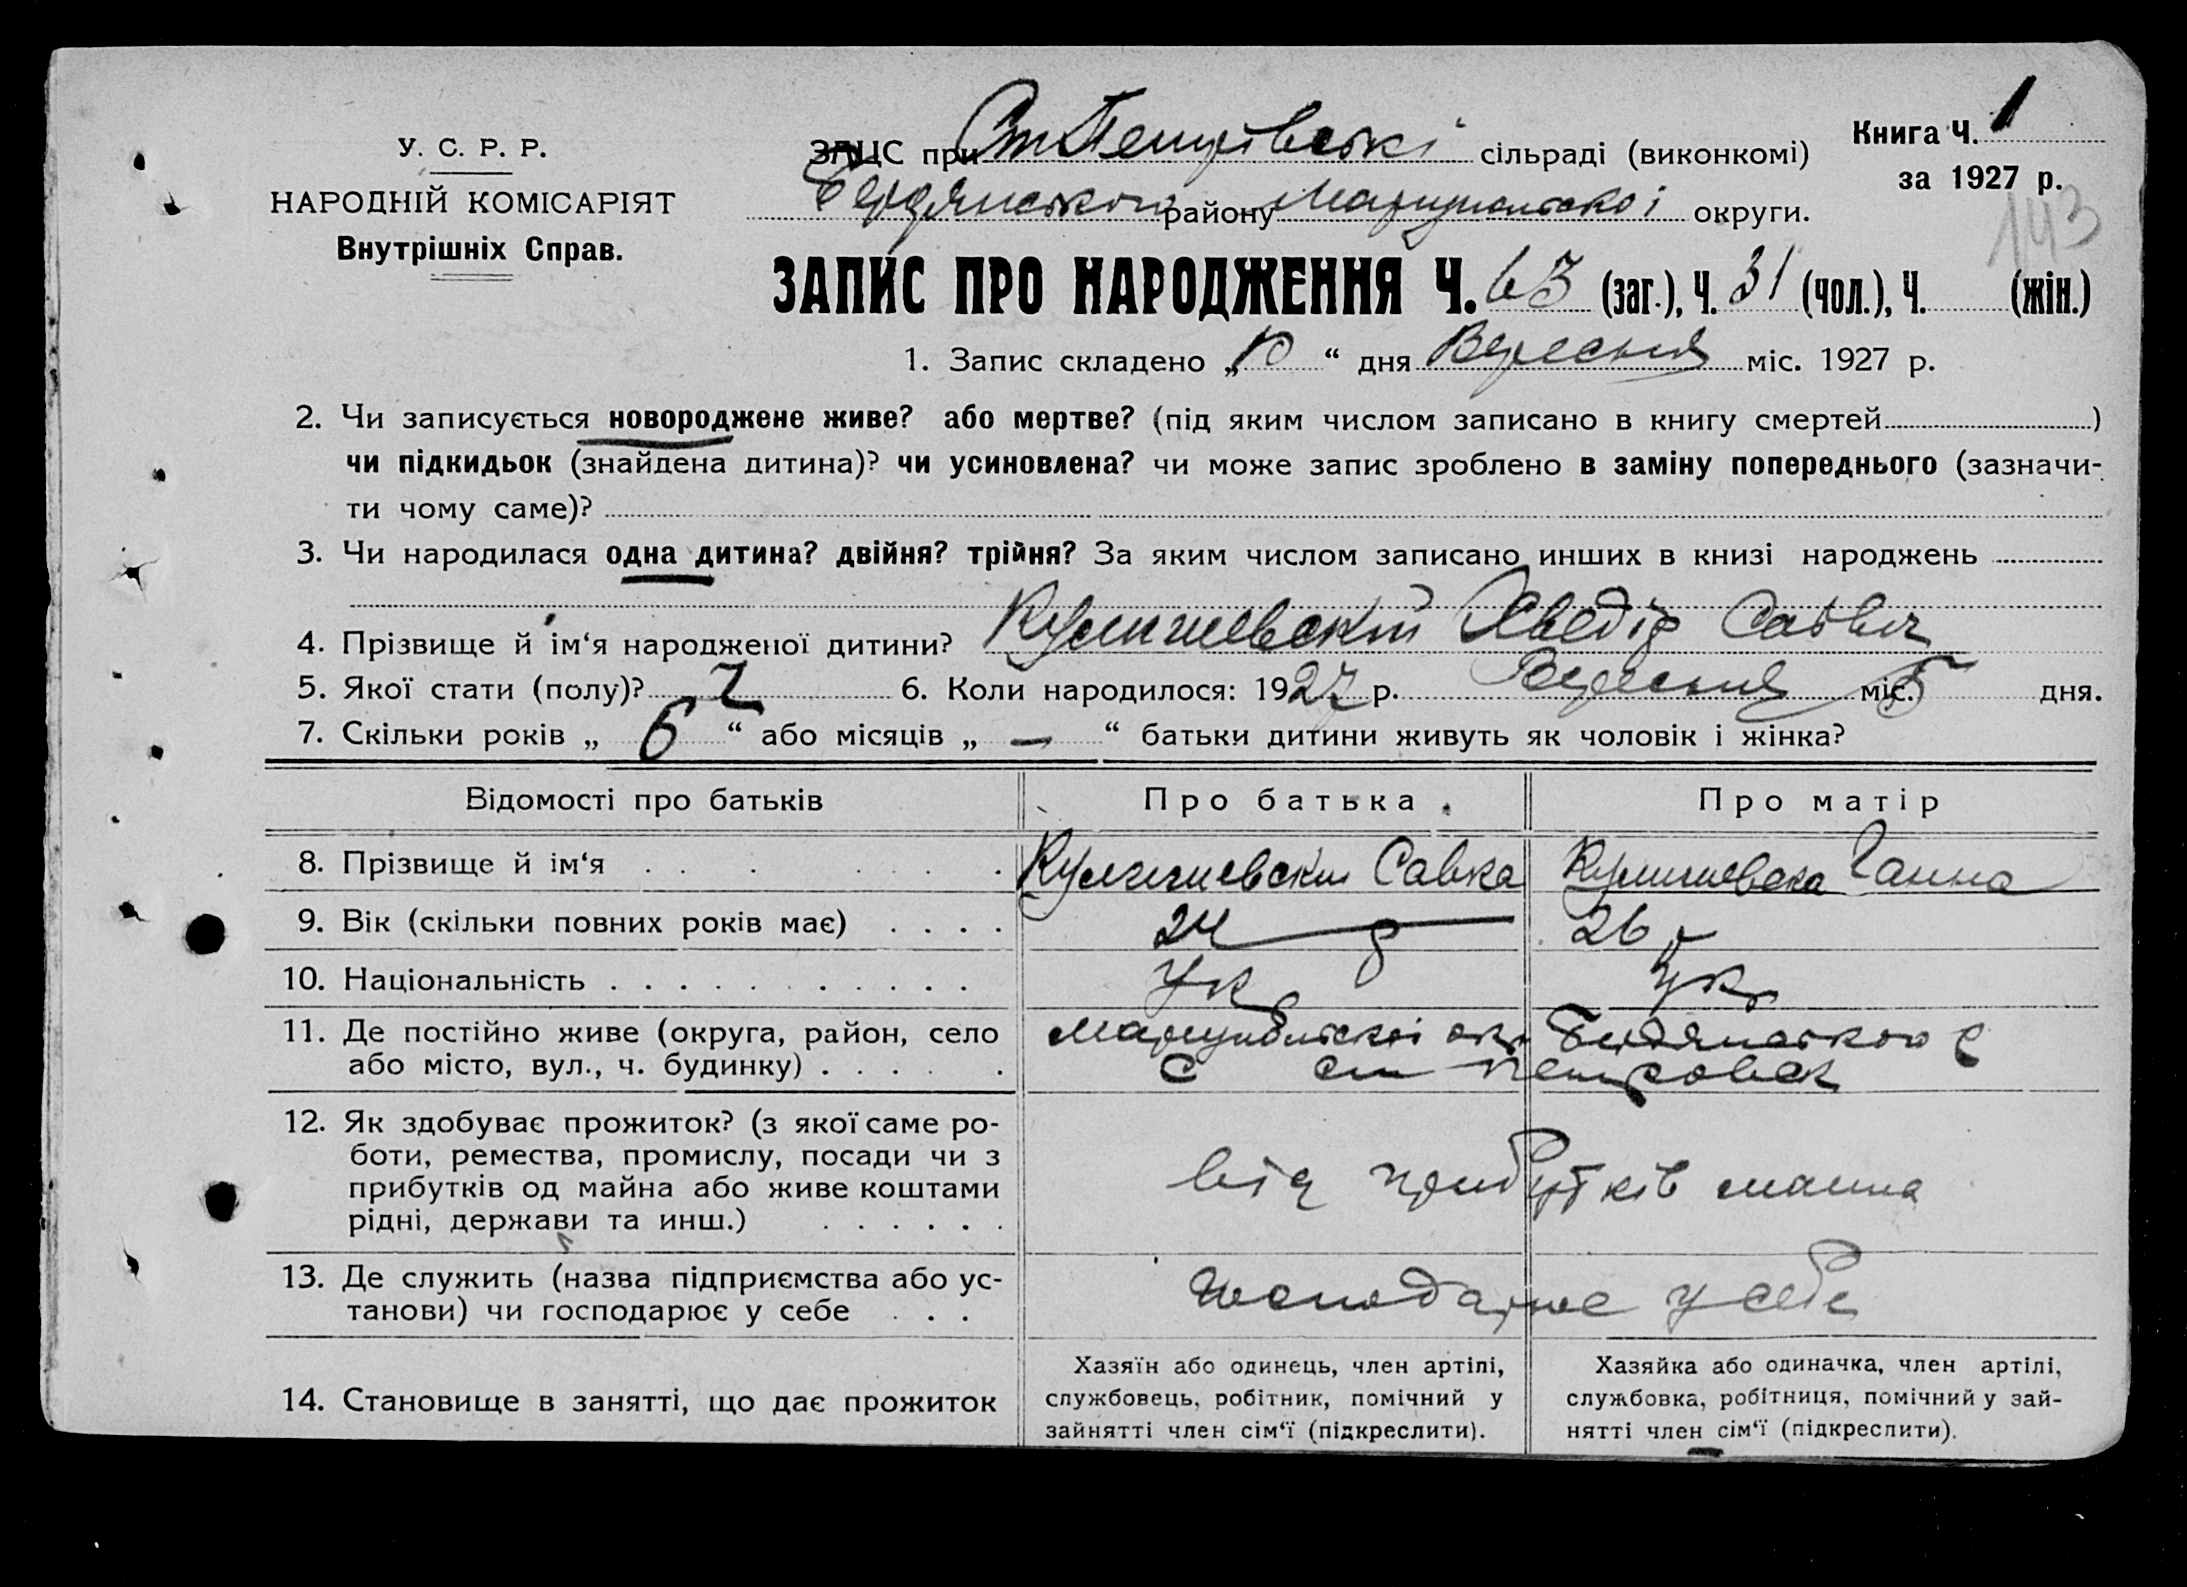 У. С. Р. Р.
НАРОДНІЙ КОМІСАРІЯТ
Внутрішніх Справ.
Книга Ч. 1
за 1927 р.
143
ЗАЦС при Ст Петрівські сільраді (виконкомі)
Бердянського району Маріупольскоі округи.
ЗАПИС ПРО НАРОДЖЕННЯ Ч. 63 (заг.), Ч. 31 (чол.), Ч. (жін.)
1. Запис складено „10“ дня Вересня міс. 1927 р.
2. Чи записується новороджене живе? або мертве? (під яким числом записано в книгу смертей )
чи підкидьок (знайдена дитина)? чи усиновлена? чи може запис зроблено в заміну попереднього (зазначи-
ти чому саме)?
3. Чи народилася одна дитина? двійня? трійня? За яким числом записано инших в книзі народжень
4. Прізвище й ім‘я народженої дитини? Хведір Савич
5. Якої стати (полу)? ч 6. Коли народилося: 1927 р. Вересня міс. 5 дня.
7. Скільки років „ 6 “ або місяців „ — “ батьки дитини живуть як чоловік і жінка?
Відомості про батьків Про батька Про матір
8. Прізвище й ім‘я . . . . . . . Савка Ганна
9. Вік (скільки повних років має) . . . . 24 26
10. Національність . . . . . . . . . . Укр Укр
11. Де постійно живе (округа, район, село Маріупольскоі окр Бердянського р
або місто, вул., ч. будинку) . . . . . с ст Петровск
12. Як здобуває прожиток? (з якої саме ро-
боти, ремества, промислу, посади чи з
прибутків од майна або живе коштами
рідні, держави та инш.) . . . . . .
від прибутків маина
13. Де служить (назва підприємства або ус-
танови) чи господарює у себе . . .
господарює у себе
14. Становище в занятті, що дає прожиток
Хазяїн або одинець, член артілі,
службовець, робітник, помічний у
зайнятті член сім‘ї (підкреслити).
Хазяйка або одиначка, член артілі,
службовка, робітниця, помічний у зай-
нятті член сім‘ї (підкреслити).